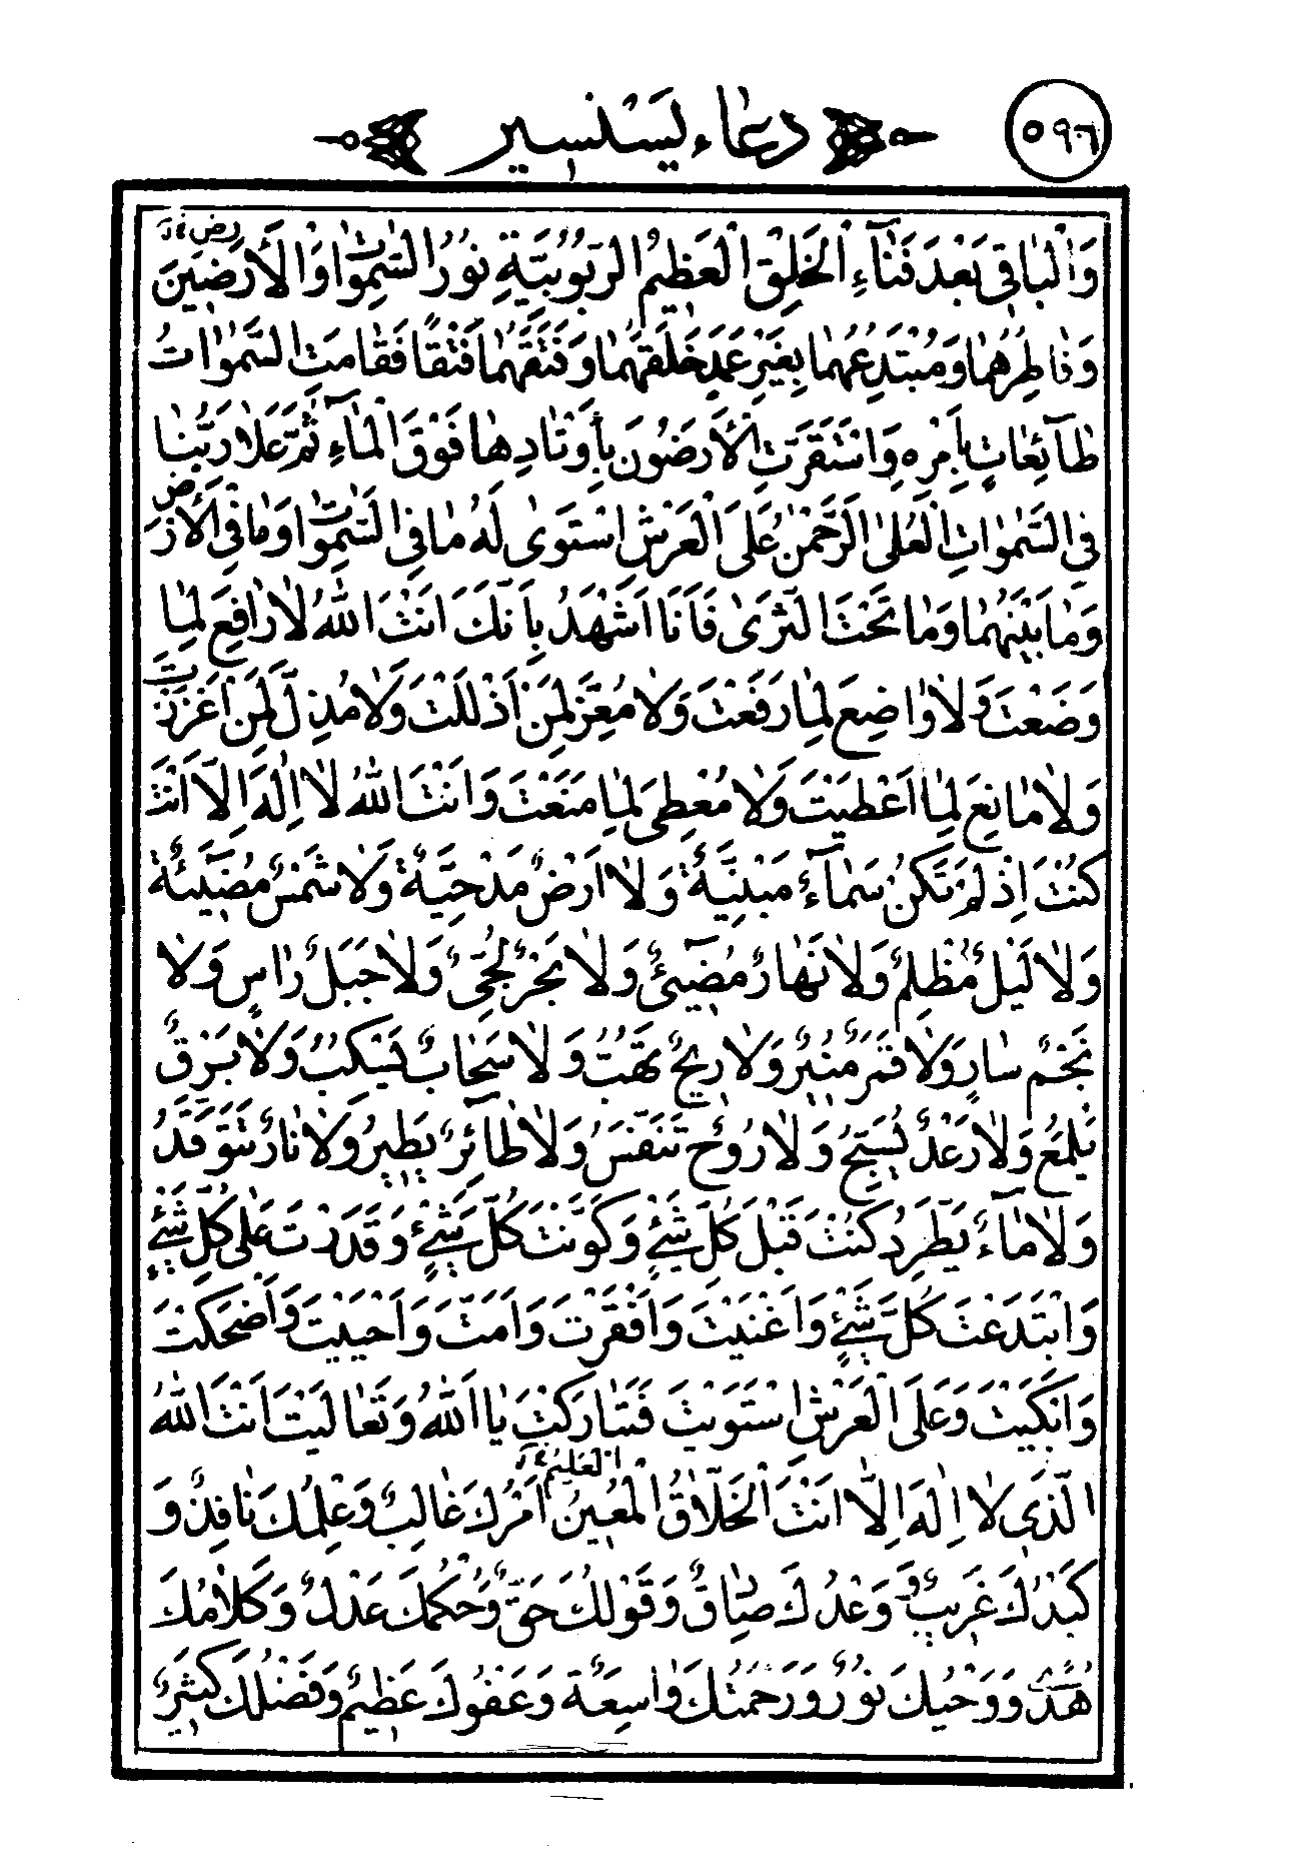 ٥٩٦
دعاء يستشير
وَالْباقِي بَعْدَ فَنٰاۤءِ الْخَلْقِ الْعَظِيمُ الرُّبُوبِيَّةِ نُورُ السَّمٰوٰاتِ وَالْأَرَضِينَ
وَفٰاطِرُهُمٰا وَمُبْتَدِعُهُمٰا بِغَيْرِ عَمَدٍ خَلَقَهُمٰا وَفَتَقَهُمٰا فَتْقاً فَقٰامَتِ السَّمٰوٰاتُ
طٰاۤئِعٰاتٍ بِأَمْرِهِ وَاسْتَقَرَّتِ الْأَرَضُونَ بِأَوْتٰادِهٰا فَوْقَ الْمٰاۤءِ ثُمَّ عَلٰا رَبُّنٰا
فِي السَّمٰوٰاتِ الْعُلىٰ الرَّحْمٰنُ عَلَى الْعَرْشِ اسْتَوىٰ لَهُ مٰا فِي السَّمٰوٰاتِ وَمٰا فِي الْأَرْضِ
وَمٰا بَيْنَهُمٰا وَمٰا تَحْتَ الثَّرىٰ فَاَنَا اَشْهَدُ بِاَنَّكَ اَنْتَ اللّٰهُ لٰا رٰافِعَ لِمٰا
وَضَعْتَ وَلٰا وٰاضِعَ لِمٰا رَفَعْتَ وَلٰا مُعِزَّ لِمَنْ اَذْلَلْتَ وَلٰا مُذِلَّ لِمَنْ اَعْزَزْتَ
وَلٰا مٰانِعَ لِمٰا اَعْطَيْتَ وَلٰا مُعْطِيَ لِمٰا مَنَعْتَ وَاَنْتَ اللّٰهُ لٰا اِلٰهَ اِلّٰا اَنْتَ
كُنْتَ اِذْ لَمْ تَكُنْ سَمٰاۤءٌ مَبْنِيَّةٌ وَلٰا اَرْضٌ مَدْحِيَّةٌ وَلٰا شَمْسٌ مُضِيۤئَةٌ
وَلٰا لَيْلٌ مُظْلِمٌ وَلٰا نَهٰارٌ مُضِيۤئٌ وَلٰا بَحْرٌ لُجِّيٌّ وَلٰا جَبَلٌ رٰاسٍ وَلٰا
نَجْمٌ سٰارٍ وَلٰا قَمَرٌ مُنِيرٌ وَلٰا رِيحٌ تَهُبُّ وَلٰا سَحٰابٌ يَسْكُبُ وَلٰا بَرْقٌ
يَلْمَعُ وَلٰا رَعْدٌ يُسَبِّحُ وَلٰا رُوحٌ تَنَفَّسُ وَلٰا طٰاۤئِرٌ يَطِيرُ وَلٰا نٰارٌ تَتَوَقَّدُ
وَلٰا مٰاۤءٌ يَطَّرِدُ كُنْتَ قَبْلَ كُلِّ شَيْءٍ وَكَوَّنْتَ كُلَّ شَيْءٍ وَقَدَرْتَ عَلىٰ كُلِّ شَيْءٍ
وَابْتَدَعْتَ كُلَّ شَيْءٍ وَاَغْنَيْتَ وَاَفْقَرْتَ وَاَمَتَّ وَاَحْيَيْتَ وَاَضْحَكْتَ
وَاَبْكَيْتَ وَعَلَى الْعَرْشِ اسْتَوَيْتَ فَتَبٰارَكْتَ يٰا اَللّٰهُ وَتَعٰالَيْتَ اَنْتَ اللّٰهُ
الَّذِي لٰا اِلٰهَ اِلّٰا اَنْتَ الْخَلّٰاقُ الْمُعِينُ الْعَلِيمُ اَمْرُكَ غٰالِبٌ وَعِلْمُكَ نٰافِذٌ وَ
كَيْدُكَ غَرِيبٌ وَ وَعْدُكَ صٰادِقٌ وَقَوْلُكَ حَقٌّ وَحُكْمُكَ عَدْلٌ وَكَلٰامُكَ
هُدىً وَوَحْيُكَ نُورٌ وَرَحْمَتُكَ وٰاسِعَةٌ وَعَفْوُكَ عَظِيمٌ وَفَضْلُكَ كَثِيرٌ